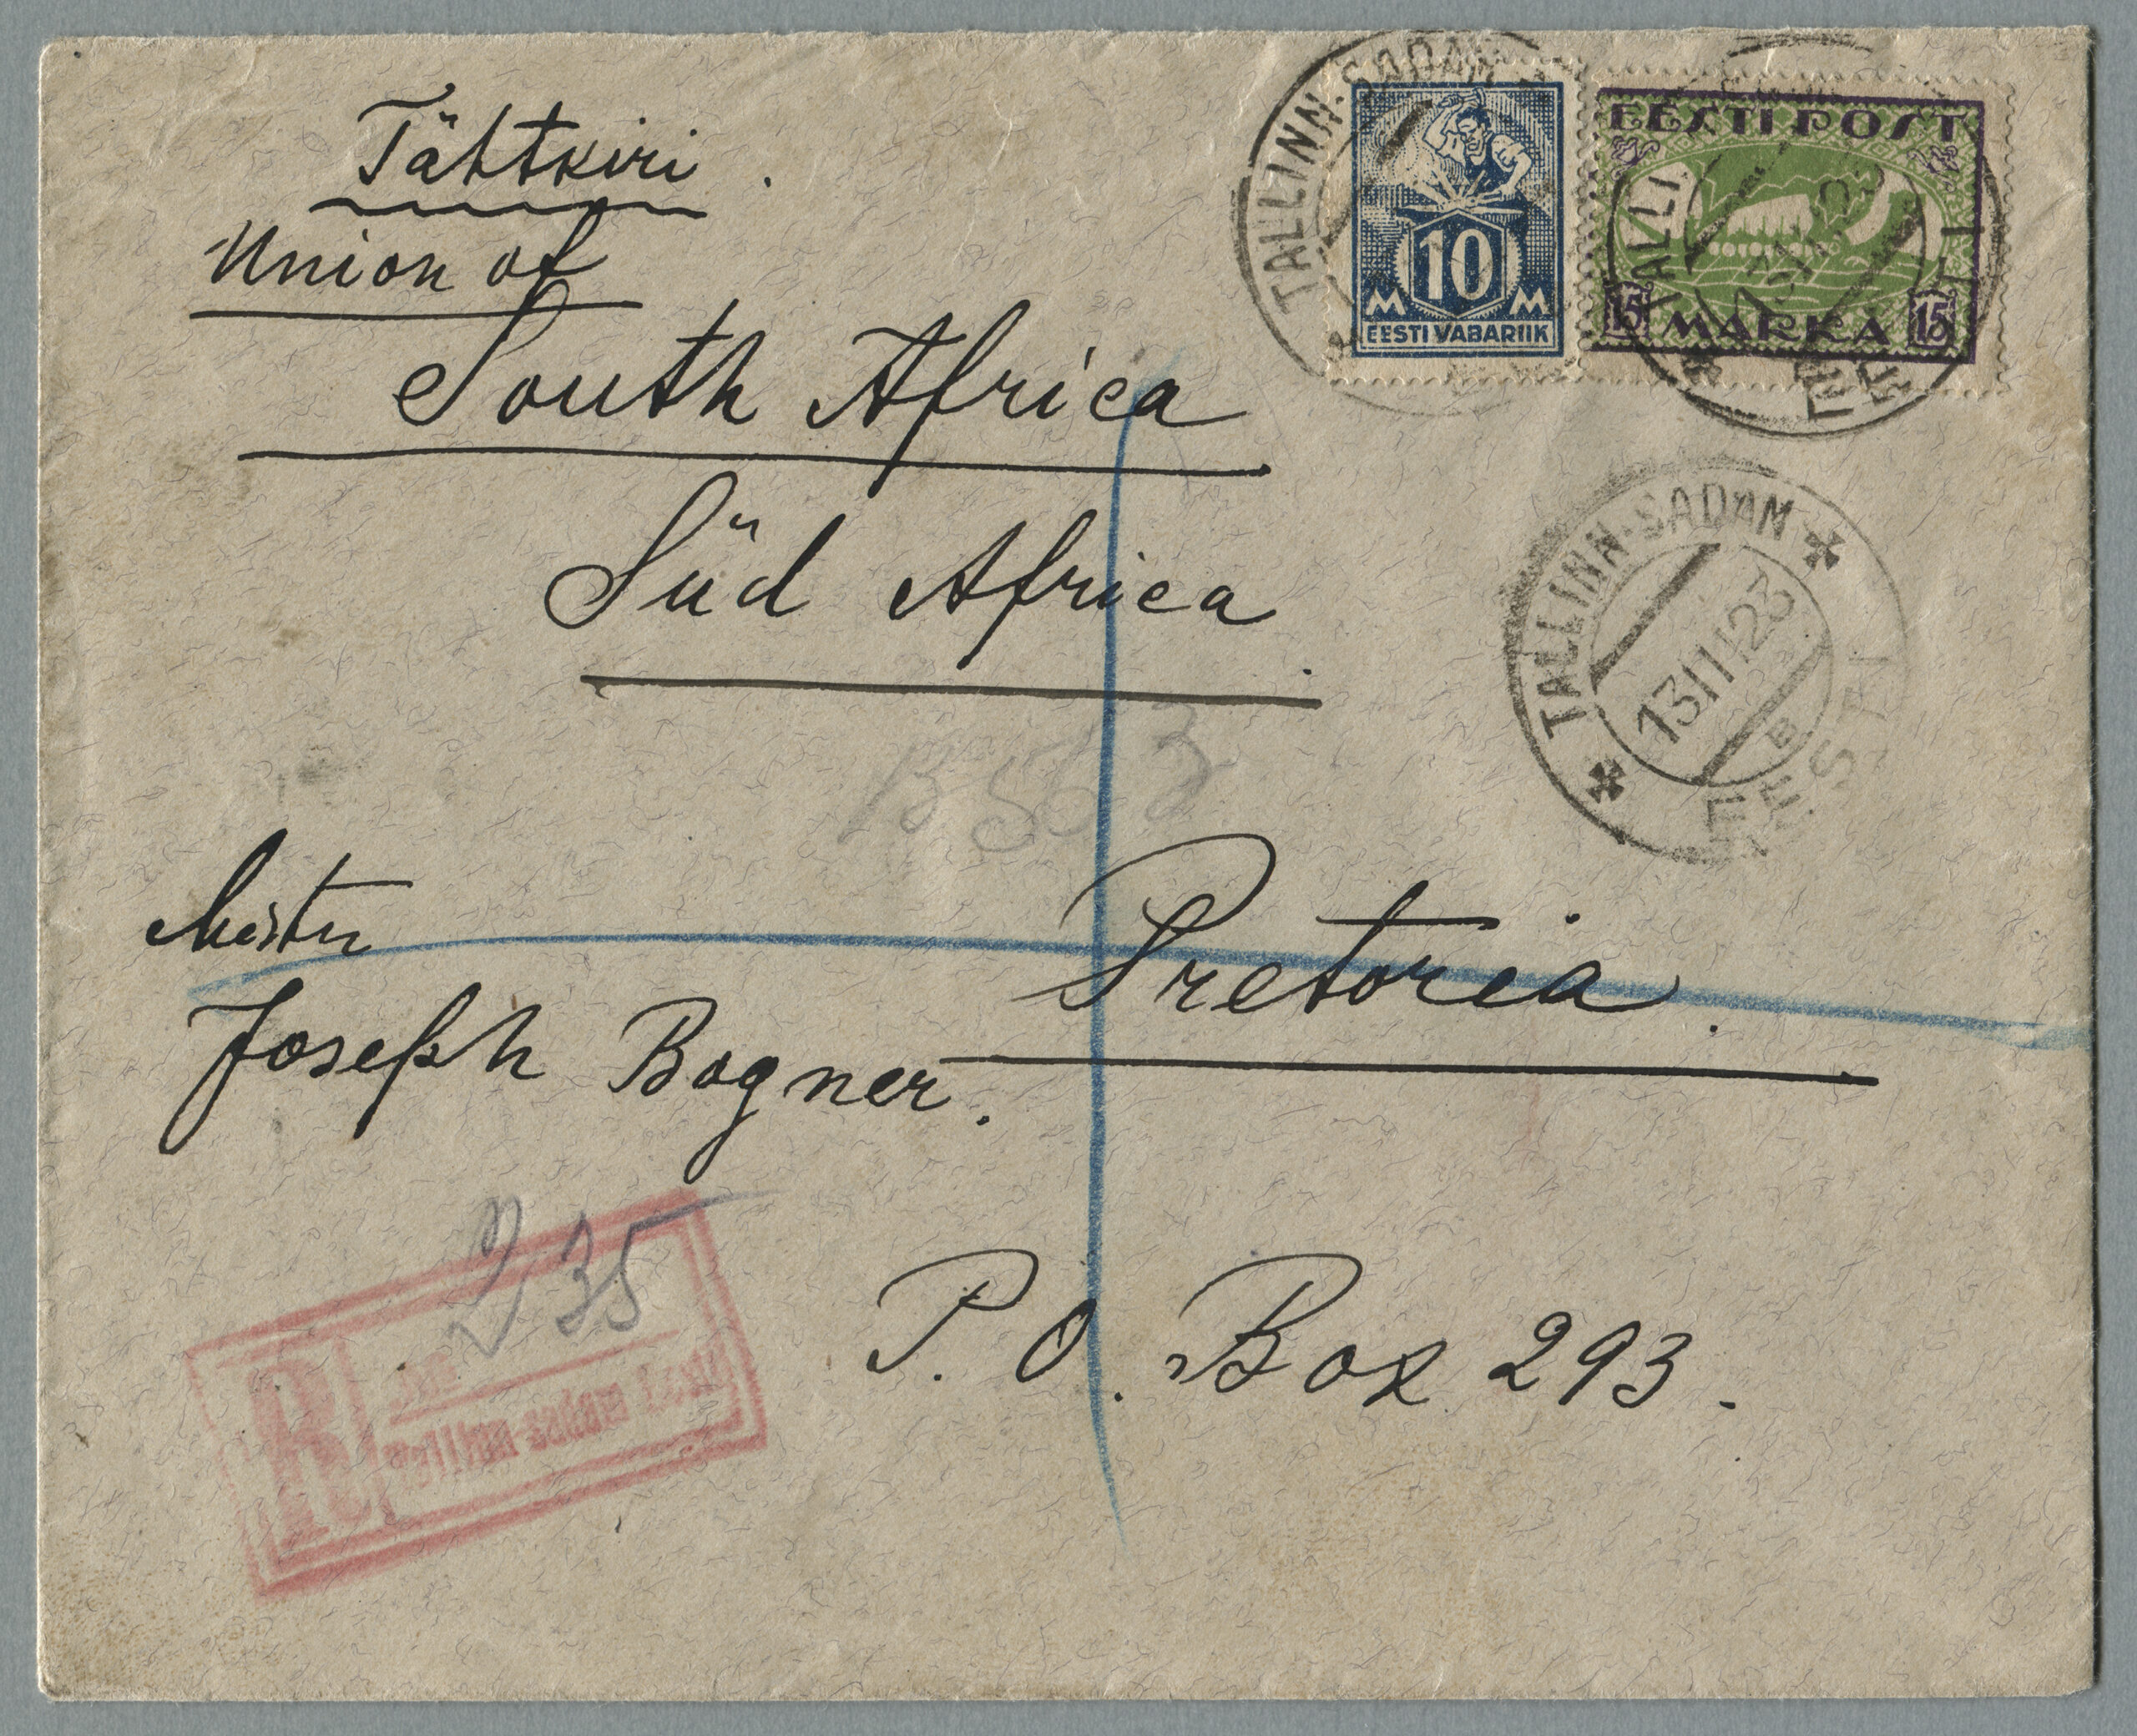 Tähtkiri.
Union of
South Africa
Süd Africa.
TALLINN-SADAM
10
M M
EESTI VABARIIK
EESTI POST
15 MARKA 15
TALLINN-SADAM
13 II 23
B
EESTI
B563
Mister
Joseph Bogner.
Pretoria.
P. O. Box 293.
R
235
Tallinn-sadam Eesti